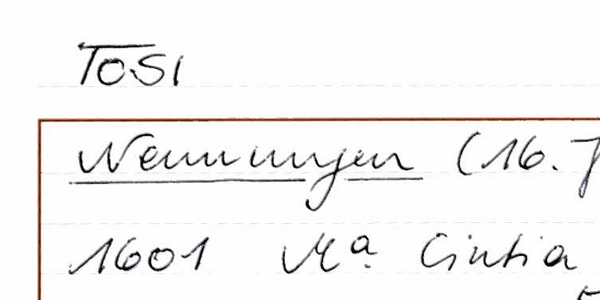 TOSI
Nennungen (16. J
1601 Mª Cintia